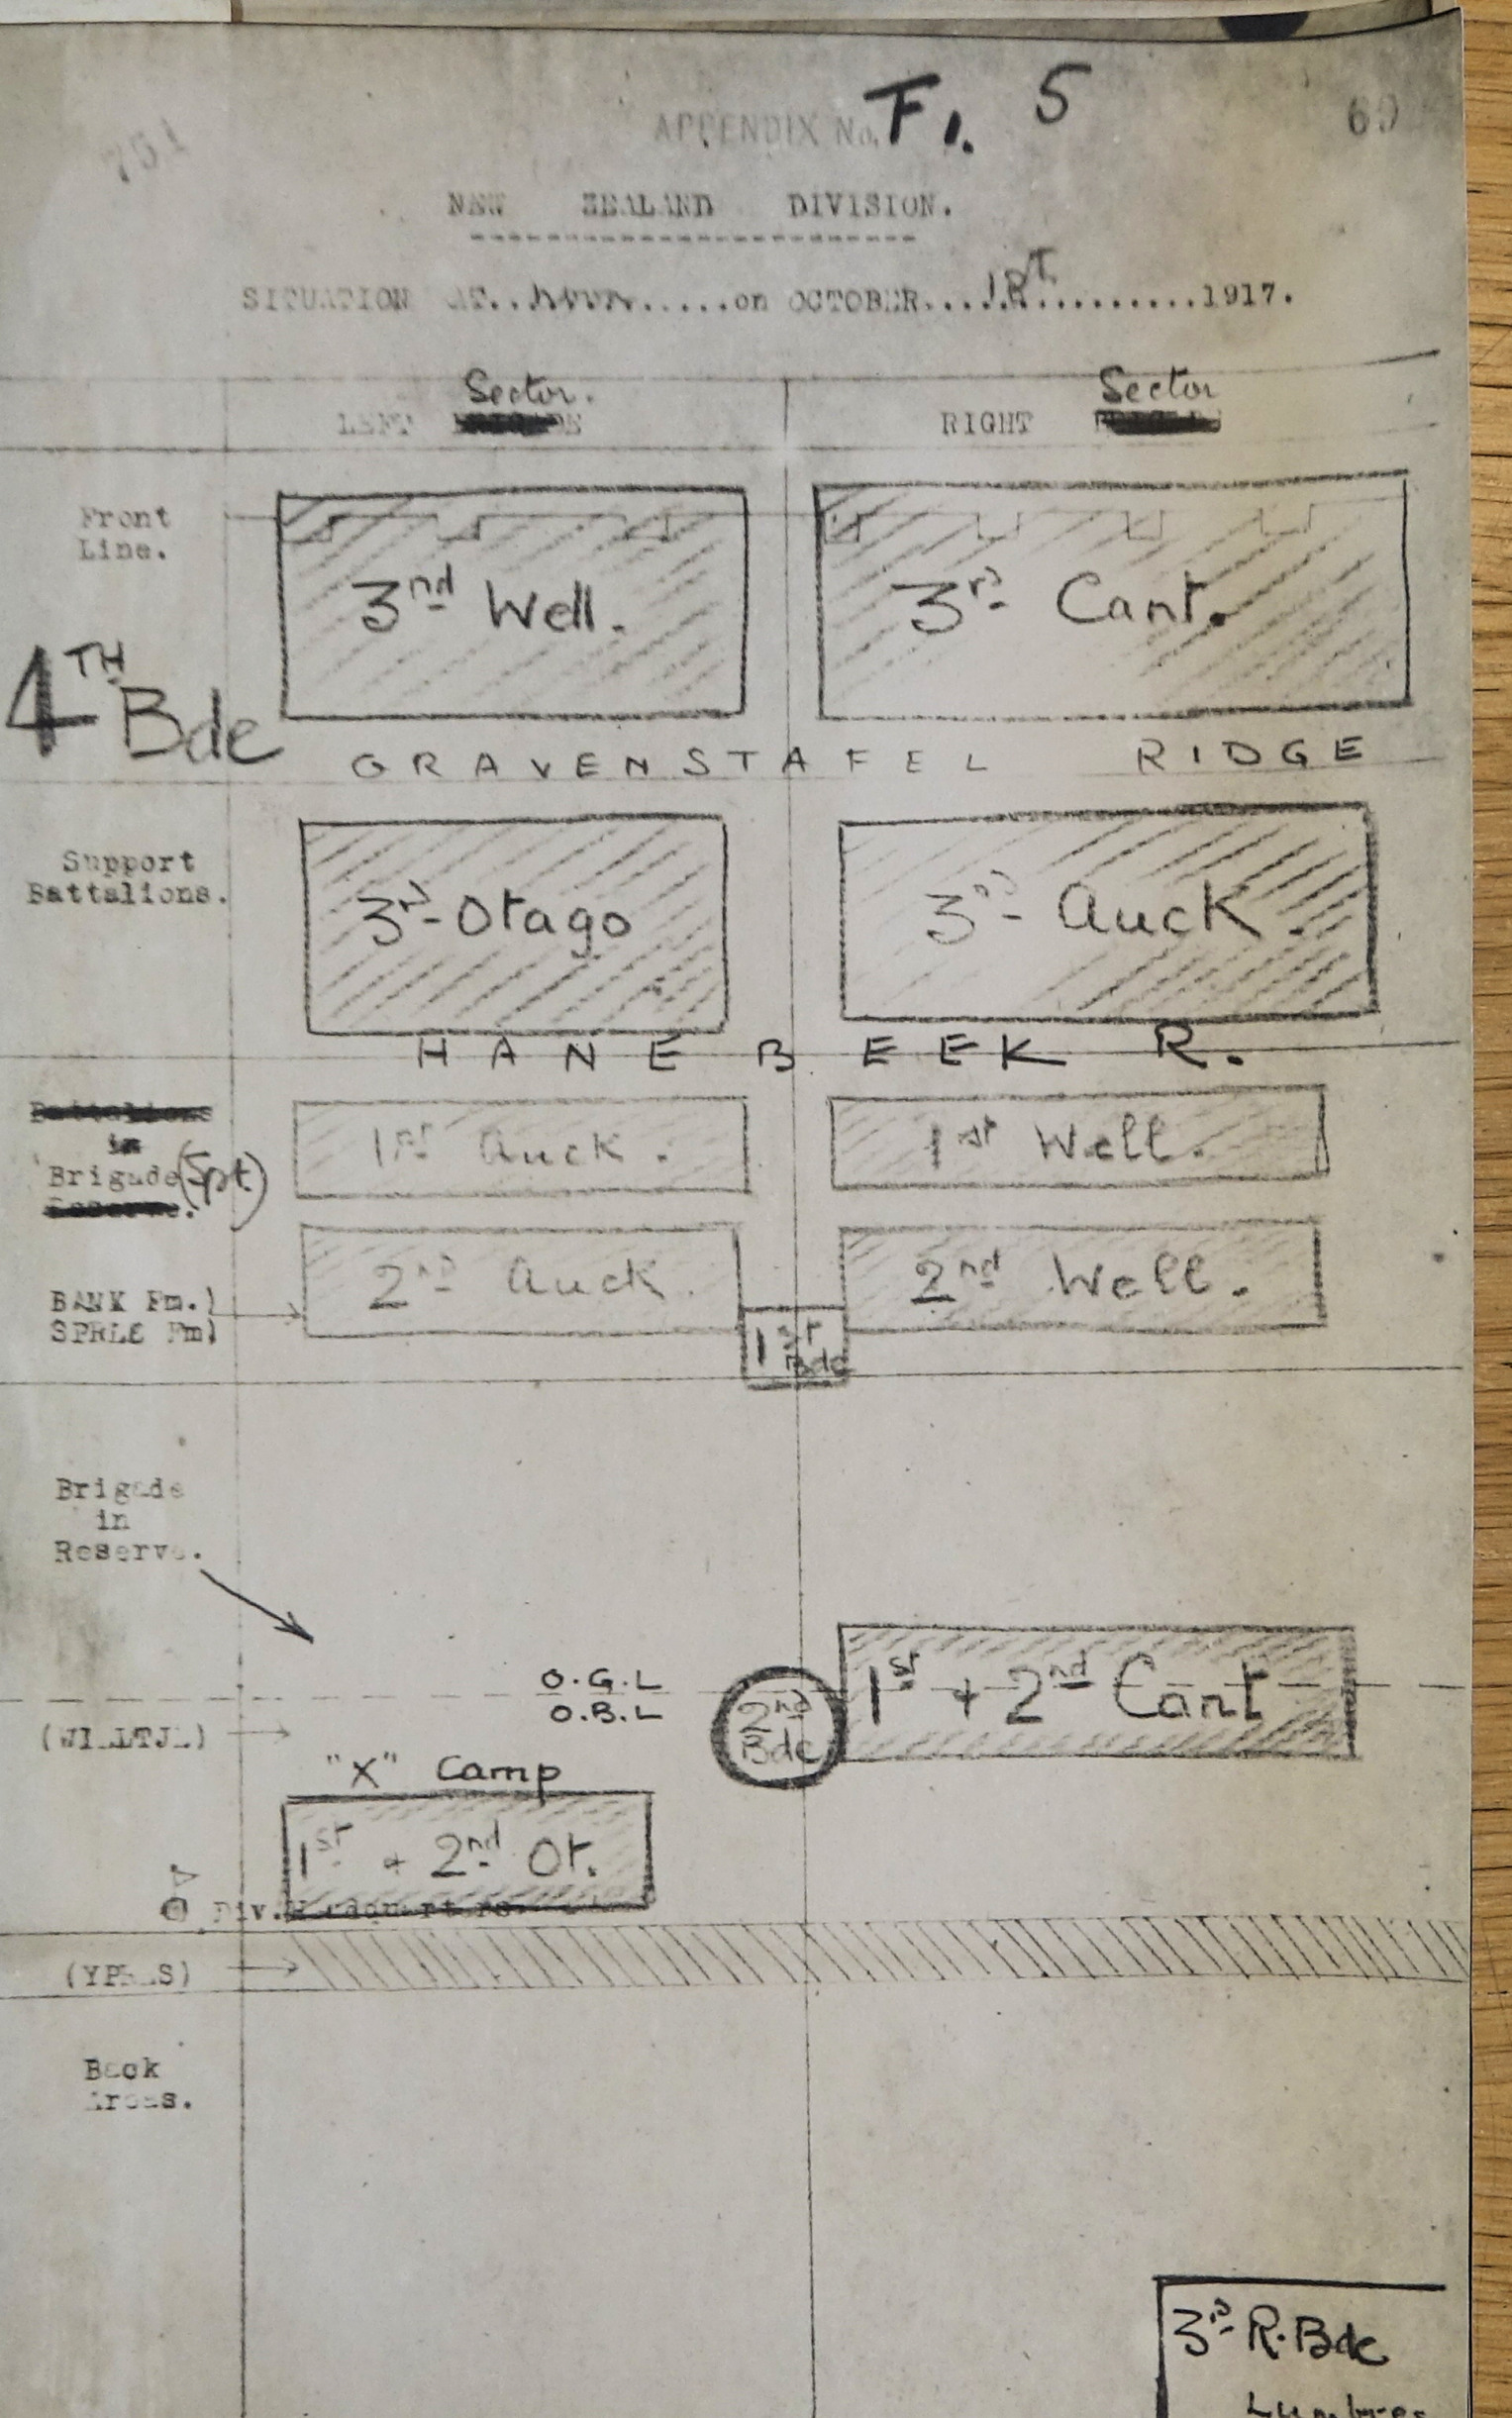 751
APPENDIX No. F1. 5
69
NEW ZEALAND DIVISION.
SITUATION AT..noon.....on OCTOBER..............1917.
Sector. Sector
LEFT RIGHT
Front
Line.
3nd Well. 3rd Cant.
4TH
Bde
GRAVENSTAFEL RIDGE
Support
Battalions.
3rd Otago 3rd Auck.
HANEBEEK R.
Battalions
in
Brigade (Spt.)
Reserve.
1st Auck. 1st Well.
2nd Auck. 2nd Well.
BANK Fm.)
SPREE Fm)
1st
Bde
Brigade
in
Reserve.
O.G.L
O.B.L
2nd
Bde
1st + 2nd Cant
(WILLTJE)
"X" Camp
1st + 2nd Ot.
Div. Headquarters.
(YPRES)
Back
Areas.
3rd R. Bde